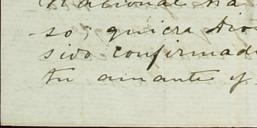 Nacional ha
so, quiera Dio
sido confirmad
tu amante y